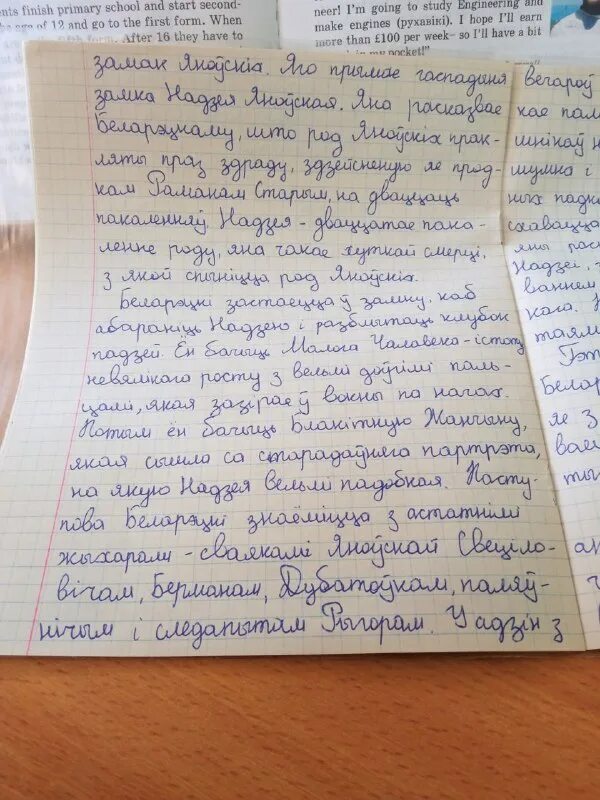 ents finish primary school and start second-
age of 12 and go to the first form. When
form. After 16 they have to
neer! I'm going to study Engineering and
make engines (рухавікі). I hope I'll earn
more than £100 per week– so I'll have a bit
in my pocket!"
замак Яноўскіх. Яго прымае гаспадыня
замка Надзея Яноўская. Яна расказвае
Беларэцкаму, што род Яноўскіх прак-
ляты праз здраду, здзейсненую яе прод-
кам Раманам Старым, на дваццаць
пакаленняў. Надзея - дваццатае пака-
ленне роду, яна чакае хуткай смерці,
з якой спыніцца род Яноўскіх.
Беларэцкі застаецца ў замку, каб
абараніць Надзею і разблытаць клубок
падзей. Ён бачыць Малога Чалавека - істоту
невялікага росту з вельмі доўгімі паль-
цамі, якая зазірае ў вокны па начах.
Потым ён бачыць Блакітную Жанчыну,
якая сышла са старадаўняга партрэта,
на якую Надзея вельмі падобная. Пасту-
пова Беларэцкі знаёміцца з астатнімі
жыхарамі - сваякамі Яноўскай Свеціло-
вічам, Берманам, Дубатоўкам, паляў-
нічым і следапытам Рыгорам. У адзін з
вегароў
кае пам
шнікаў н
шумна і
ных
схавацца
яны рас
Надзеі,
ваннем
кага.
таям
Гэт
Белар
яе з
ваец
ты